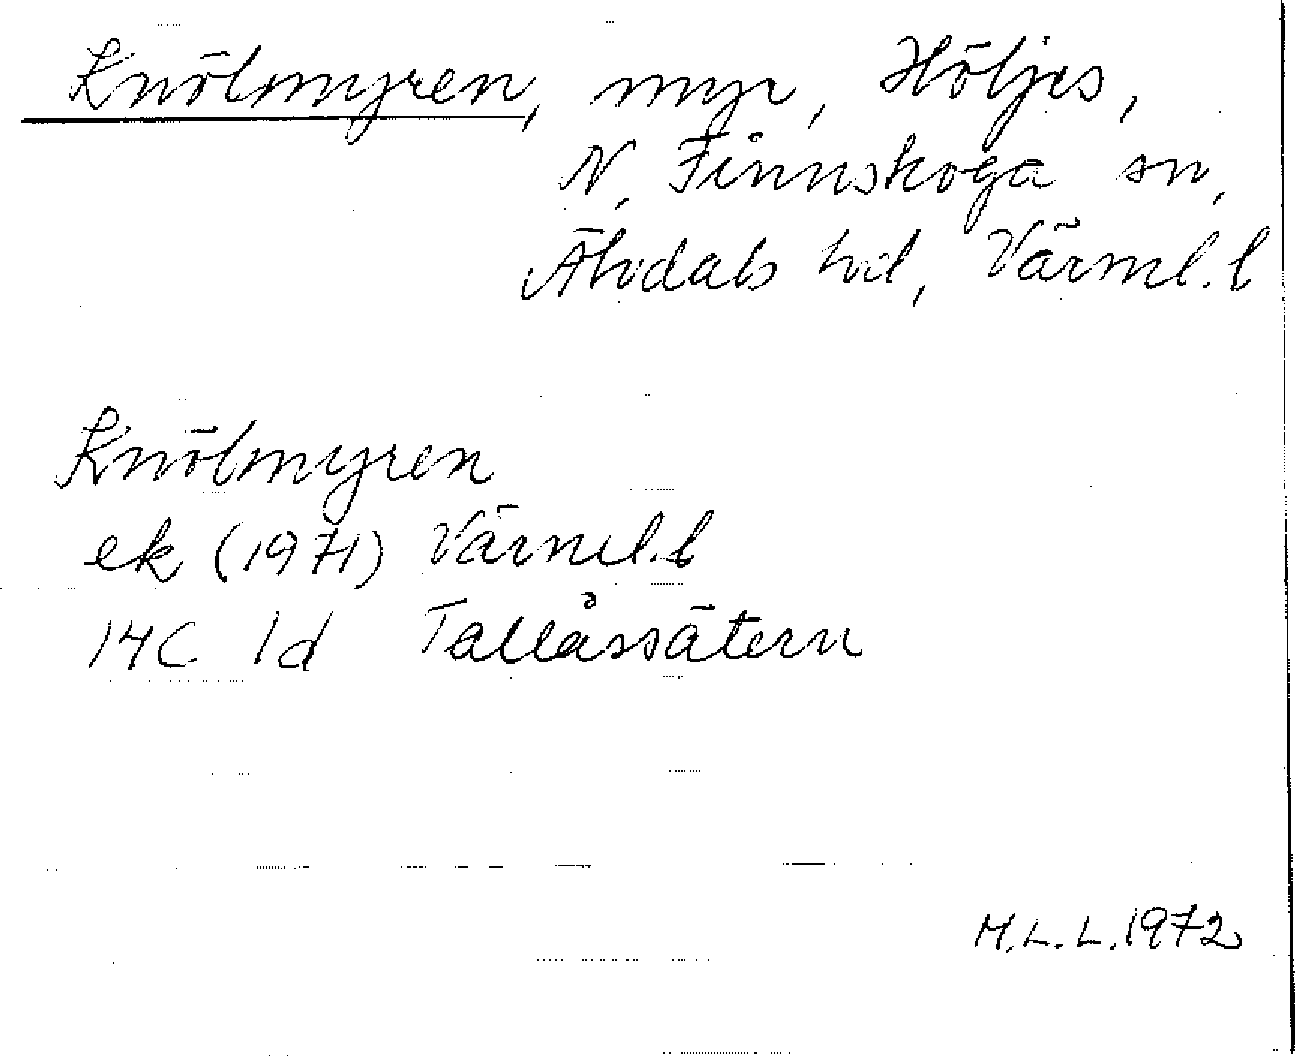 Knölmyren, myr, Höljes,
N. Finnskoga sn,
Älvdals hd, Värml. l
Knölmyren
ek (1971) Värml. l
14C 1d Tallåssätern
M.L.L. 1972